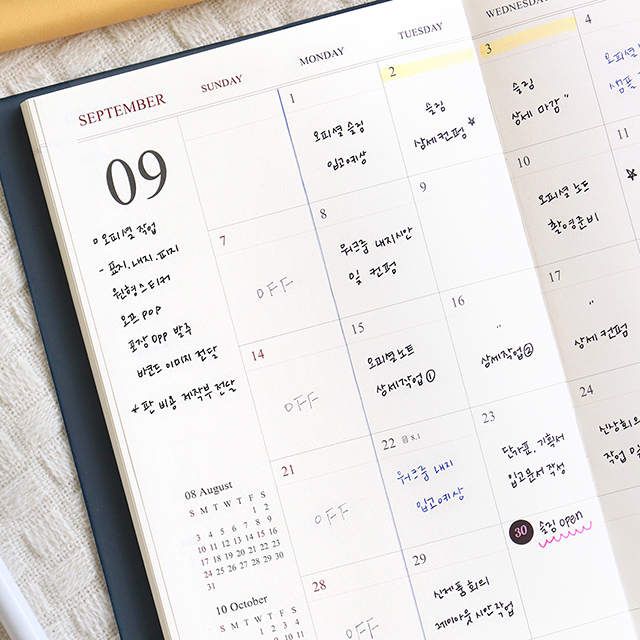 SEPTEMBER
SUNDAY
MONDAY
TUESDAY
WEDNESDAY
09
ㅁ 오피셜 작업
- 표지, 내지, 피지
원형스티커
오프 POP
포장 opp 발주
바코드 이미지 전달
* 판 비용 제작부 전달
1
오피셜 슬링
입고예상
2
슬링
상세컨펌 *
3
슬링
상세 마감 "
4
오피셜
샘플
7
OFF
8
워크룸 내지시안
및 컨펌
9
10
오피셜 노트
촬영준비
11
14
OFF
15
오피셜노트
상세작업 ①
16
"
상세작업②
17
"
상세컨펌
21
OFF
22 음 8.1
워크룸 내지
입고예상
23
단가표, 기획서
입고문서 작성
24
신상회의
작업 및
28
OFF
29
신제품 회의
레이아웃 시안 작업
30
슬링 open
08 August
S M T W T F S
1 2
3 4 5 6 7 8 9
10 11 12 13 14 15 16
17 18 19 20 21 22 23
24 25 26 27 28 29 30
31
10 October
S M T W T F S
1 2 3 4